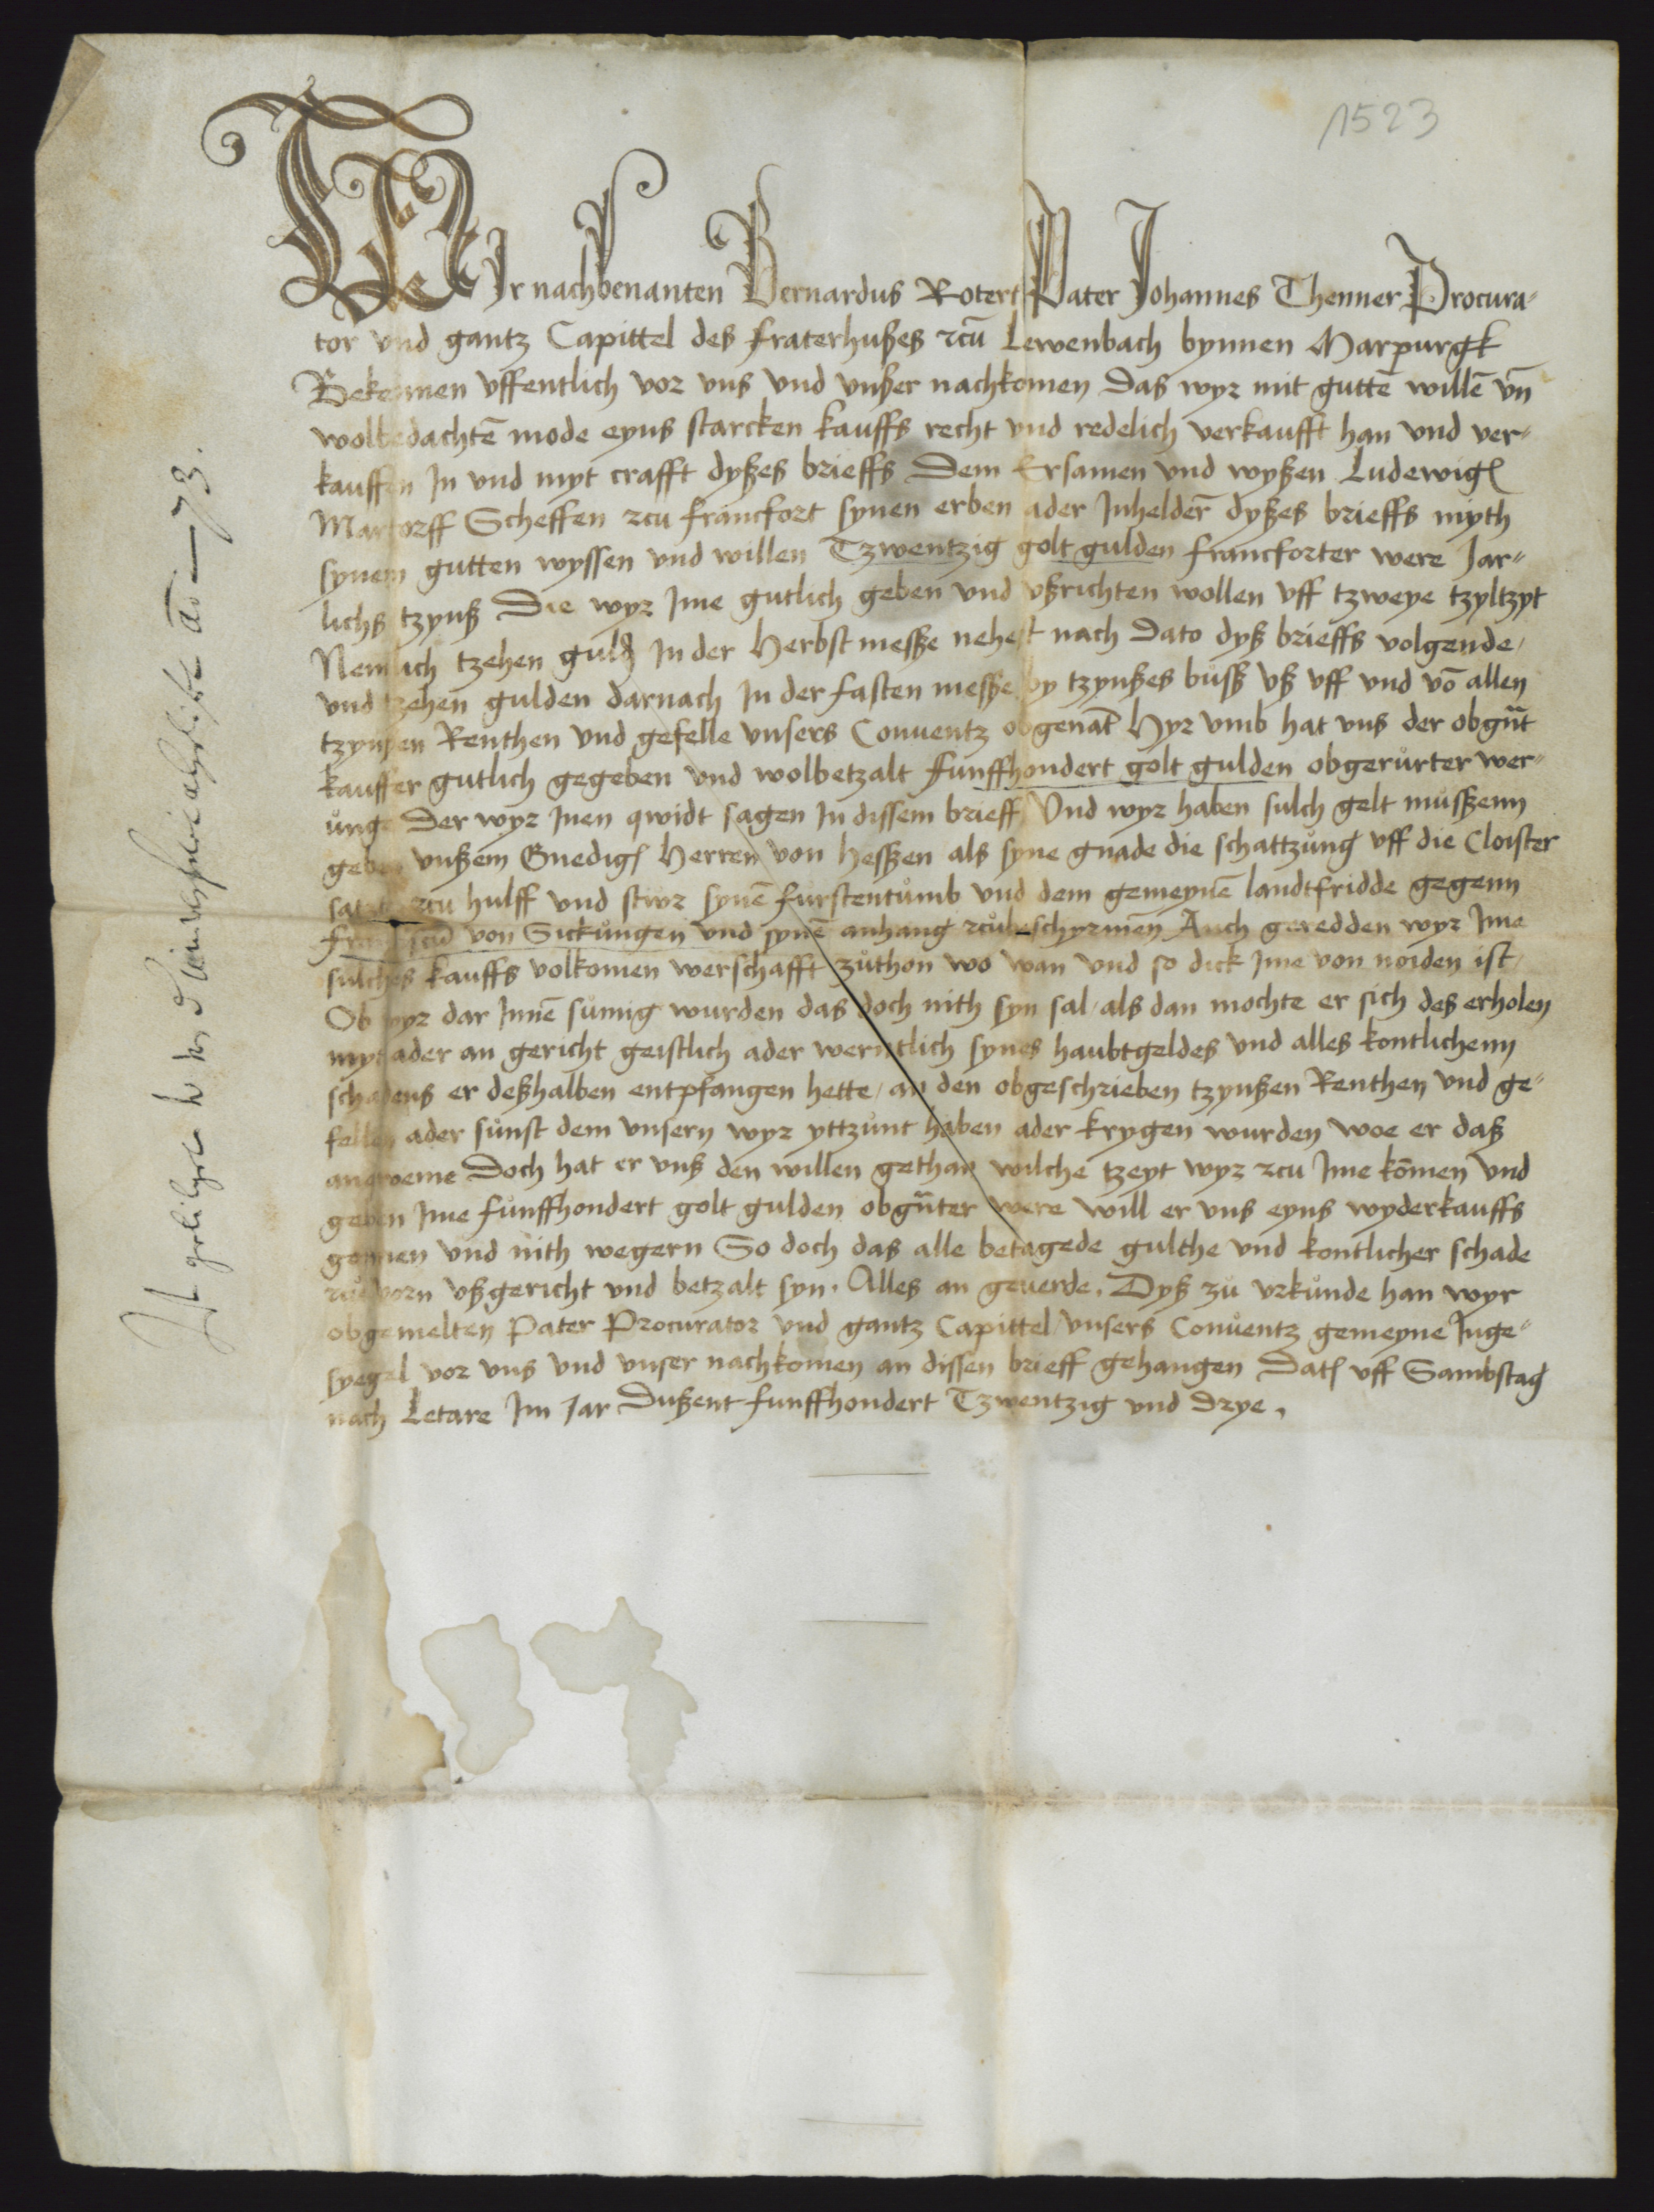 1523
WIr nachbenanten Bernardus Rotert Pater Johannes Thenner Procura-
tor vnd gantz Capittel des fraterhußes zcu Lewenbach bynnen Marpurgk
Bekennen vffentlich vor vns vnd vnßer nachkomen Das wyr mit guttē willē vn̄
wolbedachtē mode eyns starcken kauffs recht vnd redelich verkaufft han vnd ver-
kauffen In vnd myt crafft dyßes brieffs Dem Ersamen vnd wyßen Ludewig
Martorff Scheffen zcu francfort synen erben ader Inhelder dyßes brieffs myth
synem gutten wyssen vnd willen Tzwentzig golt gulden francforter were Jar-
lichs tzynß Die wyr Ime gutlich geben vnd vßrichten wollen vff tzweye tzyltzyt
Nemlich tzehen guld In der Herbst messe nehest nach Dato dyß brieffs volgende,
vnd tzehen gulden darnach In der fasten messe by tzynßes bůß vß vff vnd vō allen
tzynßen Renthen vnd gefelle vnsers Conuentz obgenāt Hyr vmb hat vns der obgn̄t
kauffer gutlich gegeben vnd wolbetzalt funffhondert golt gulden obgerůrter wer-
ůnge Der wyr Inen qwidt sagen In dissem brieff Vnd wyr haben sulch gelt můssenn
geben vnßem Gnedig Herren von Hessen als syne gnade die schattzůng vff die Cloister
satzt zcu hulff vnd stwr synē furstentůmb vnd dem gemeynē landtfridde gegenn
Franciscū von Sickůngen vnd synē anhang zcůbeschyrmen Auch geredden wyr Ime
sulches kauffs volkomen werschafft zůthon wo wan vnd so dick Ime von noiden ist,
Ob wyr dar Innē sůmig wurden das doch nith syn sal, als dan mochte er sich des erholen
myt ader an gericht geistlich ader werntlich synes haubtgeldes vnd alles kontlichenn
schadens er deßhalben entpfangen hette, an den obgeschrieben tzynßen Renthen vnd ge-
fellen ader sůnst dem vnsern wyr yttzůnt haben ader krygen wurden woe er daß
anqweme Doch hat er vnß den willen gethan wilche tzeyt wyr zcu Ime kōmen vnd
geben Ime fůnffhondert golt gulden obgn̄ter were will er vns eyns wyderkauffs
gonnen vnd nith wegern So doch das alle betagede gulthe vnd kontlicher schade
zcůvorn vßgericht vnd betzalt syn. Alles an geuerde. Dyß zů vrkůnde han wyr
obgemelten Pater Procurator vnd gantz Capittel vnsers Conůentz gemeyne Inge-
syegel vor vns vnd vnser nachkomen an dissen brieff gehangen Dat vff Sambstag
nach Letare Im Jar Dußent funffhondert Tzwentzig vnd Drye.